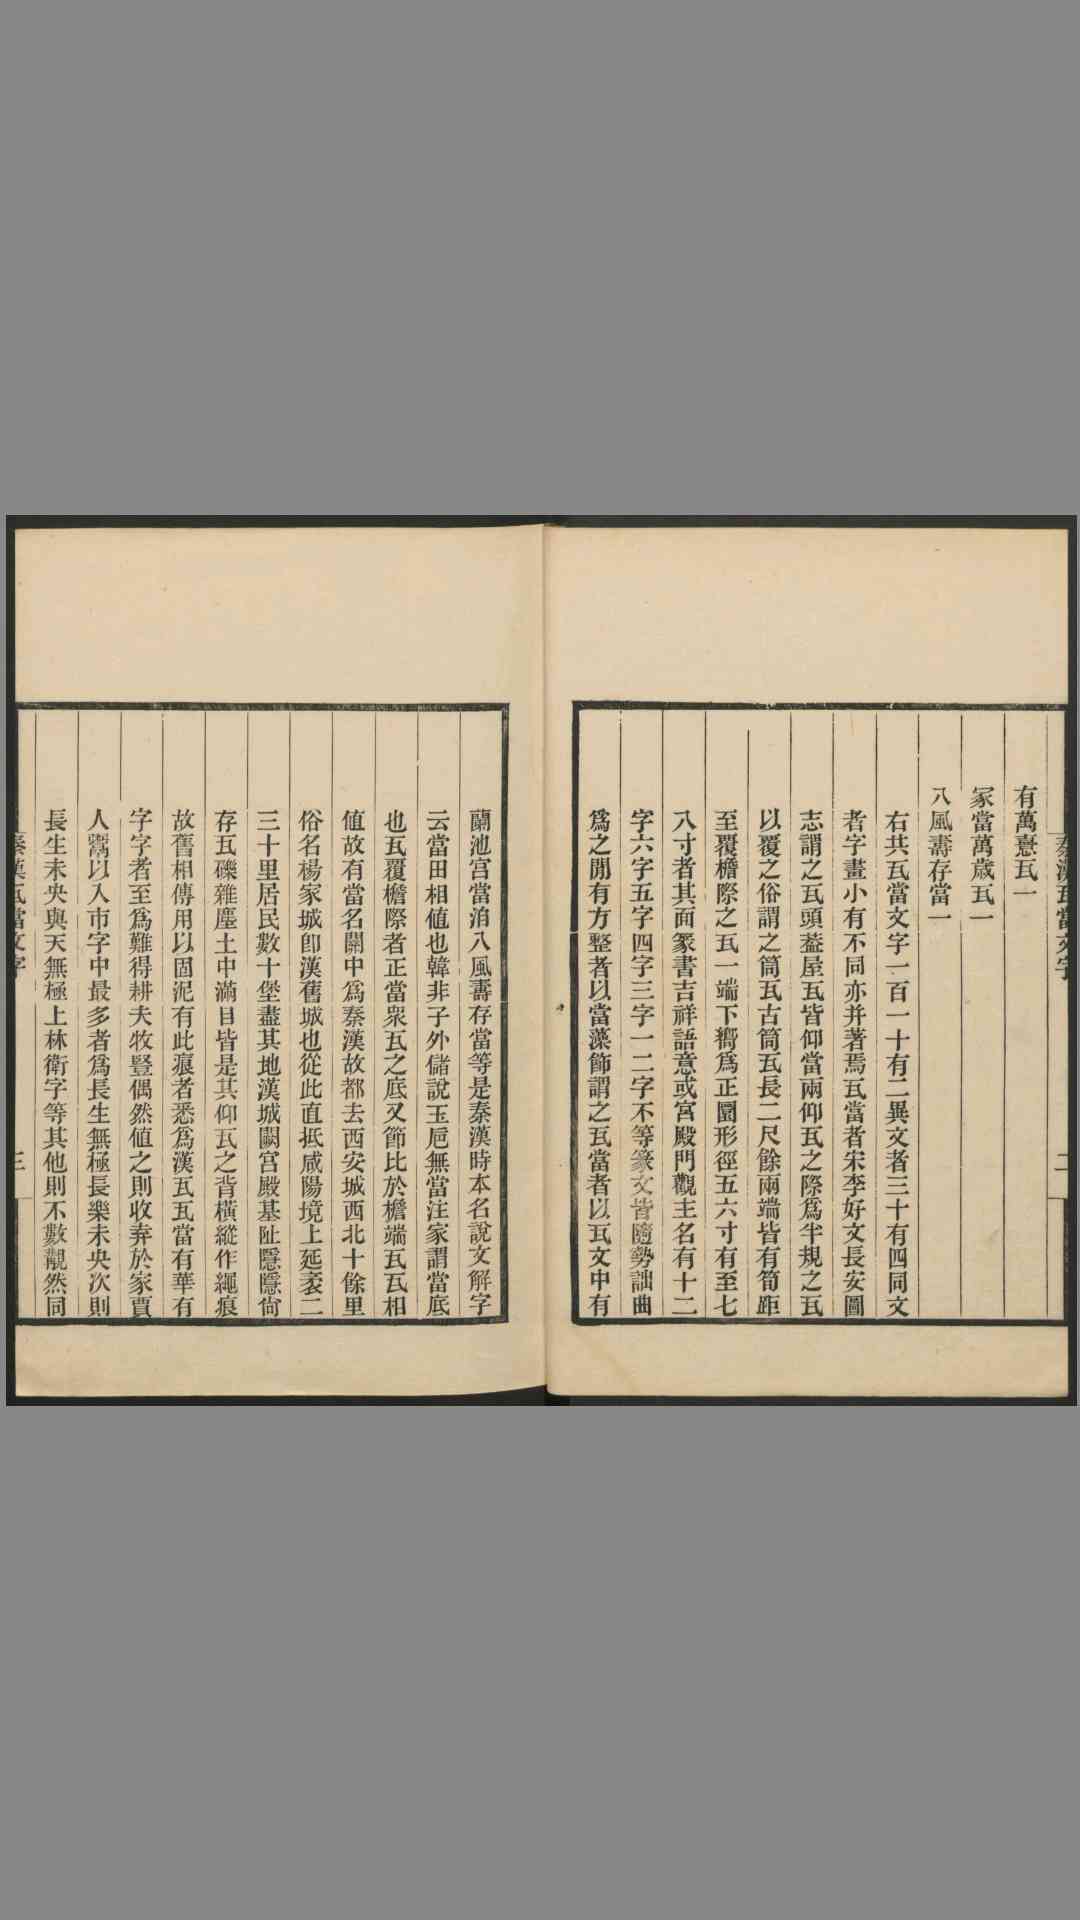 秦漢瓦當文字 二
有萬憙瓦一
冢當萬歲瓦一
八風壽存當一
右共瓦當文字一百一十有二異文者三十有四同文
者字畫小有不同亦并著焉瓦當者宋李好文長安圖
志謂之瓦頭葢屋瓦皆仰當兩仰瓦之際爲半規之瓦
以覆之俗謂之筒瓦古筒瓦長二尺餘兩端皆有筍距
至覆檐際之瓦一端下嚮爲正圜形徑五六寸有至七
八寸者其面篆書吉祥語意或宮殿門觀主名有十二
字六字五字四字三字一二字不等篆文皆隨勢詘曲
爲之閒有方整者以當藻飾謂之瓦當者以瓦文中有
蘭池宮當洎八風壽存當等是秦漢時本名說文解字
云當田相値也韓非子外儲說玉巵無當注家謂當底
也瓦覆檐際者正當衆瓦之底又節比於檐端瓦瓦相
値故有當名關中爲秦漢故都去西安城西北十餘里
俗名楊家城卽漢舊城也從此直抵咸陽境上延袤二
三十里居民數十堡盡其地漢城闕宮殿基阯隱隱尙
存瓦礫雜塵土中滿目皆是其仰瓦之背橫縱作繩痕
故舊相傳用以固泥有此痕者悉爲漢瓦瓦當有華有
字字者至爲難得耕夫牧豎偶然値之則收弆於家賈
人鬻以入市字中最多者爲長生無極長樂未央次則
長生未央與天無極上林衛字等其他則不數覯然同
秦漢瓦當文字 三